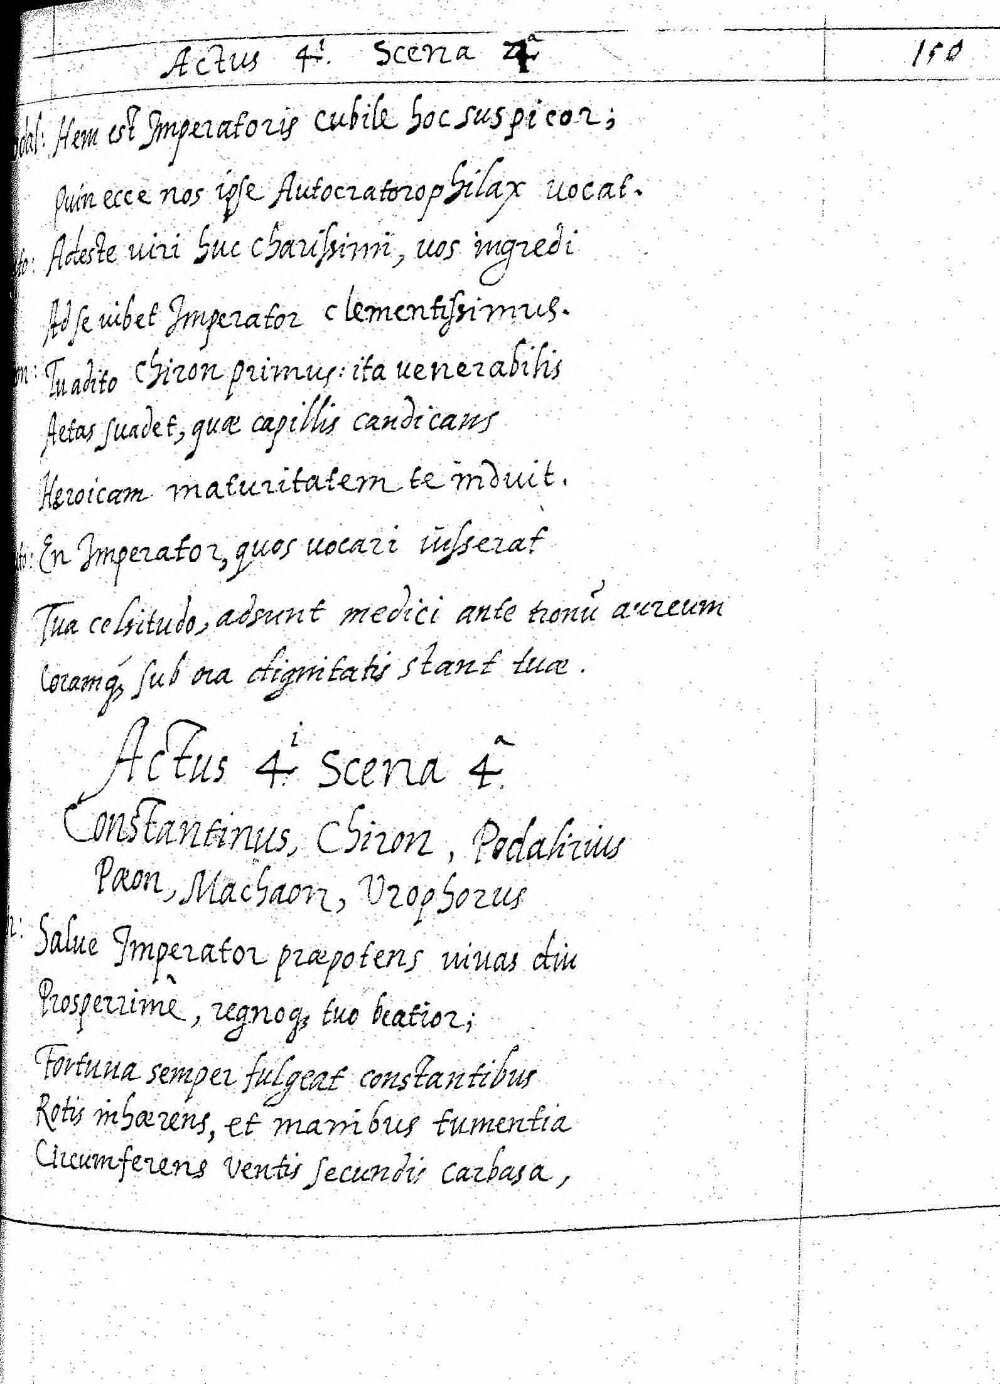 Actus 4.i Scena 4a 150
dal: Hem est Imperatoris cubile hoc suspicor;
Quin ecce nos ipse Autocratorophilax vocat.
to: Adeste viri huc charissimi, vos ingredi
Ad se iubet Imperator clementissimus.
on: Tu adito Chiron primus: ita venerabilis
Aetas suadet, quæ capillis candicans
Heroicam maturitatem te induit.
to: En Imperator, quos vocari iusserat
Tua celsitudo, adsunt medici ante tronū aureum
Coramq, sub ora dignitatis stant tuæ.
Actus 4.i Scena 4.a
Constantinus, Chiron, Podalirius
Pæon, Machaon, Vrophorus
Salue Imperator præpotens uiuas diu
Prosperrimè, regnoq, tuo beatior;
Fortuna semper fulgeat constantibus
Rotis inhærens, et manibus tumentia
Circumferens ventis secundis carbasa,